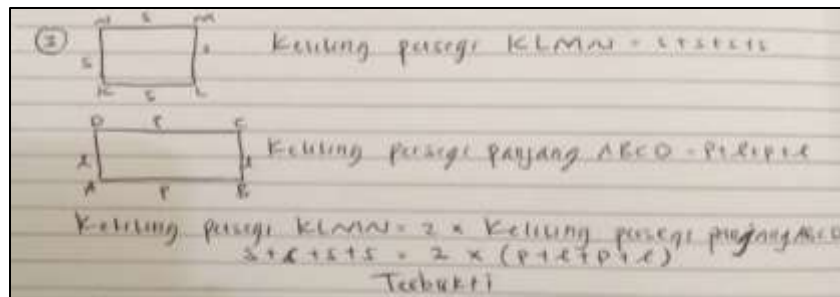 N s M
② Keliling persegi KLMN = s+s+s+s
s s
K s L
D P C
l l Keliling persegi panjang ABCD = P+l+P+l
A P B
Keliling persegi KLMN = 2 x Keliling persegi panjang ABCD
s+s+s+s = 2 x (P+l+P+l)
Terbukti